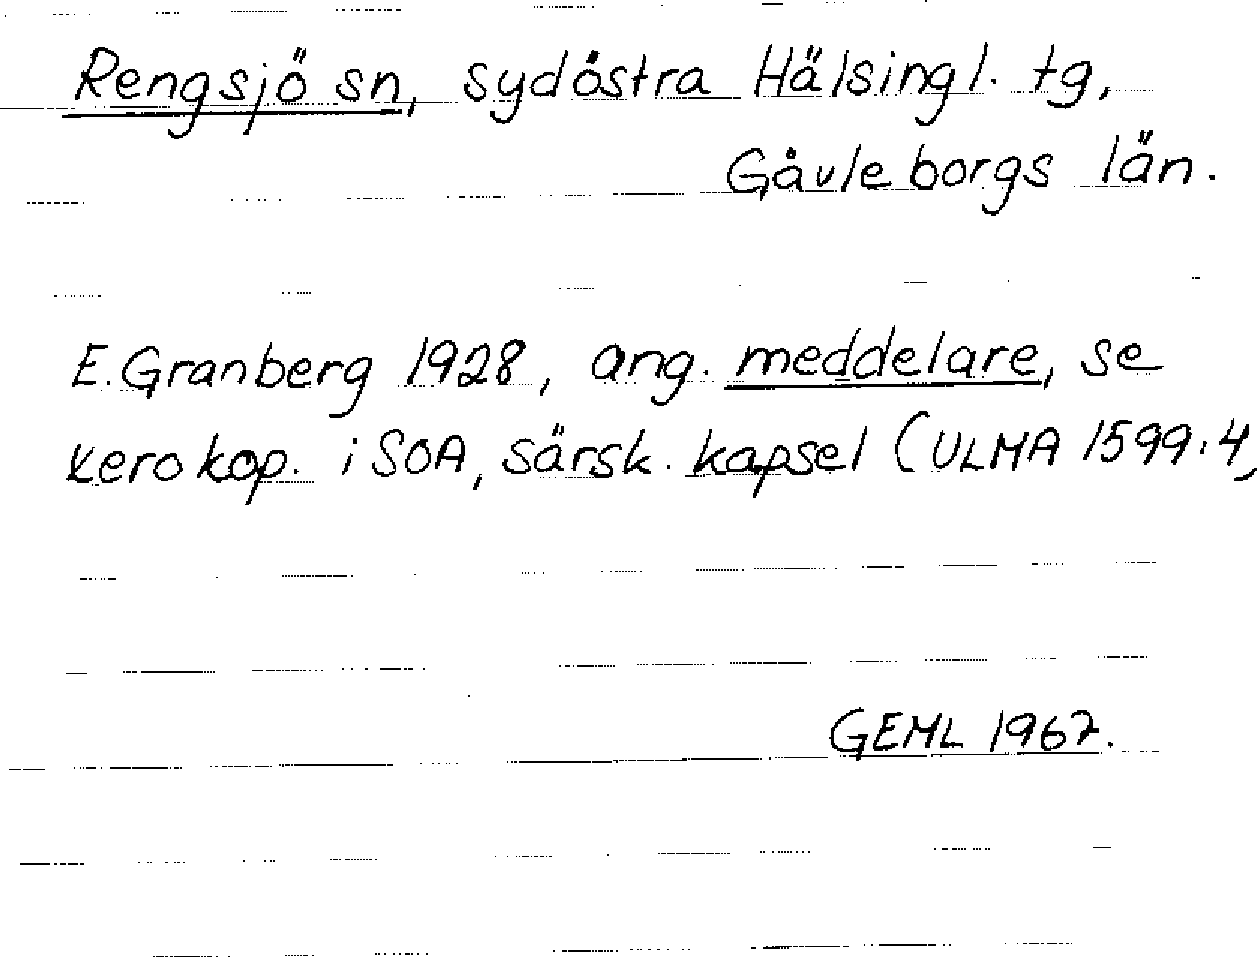 Rengsjö sn, sydöstra Hälsingl. tg,
Gävleborgs län.
E. Granberg 1928, ang. meddelare, se
xerokop. i SOA, särsk. kapsel (ULMA 1599:4)
GEML 1967.